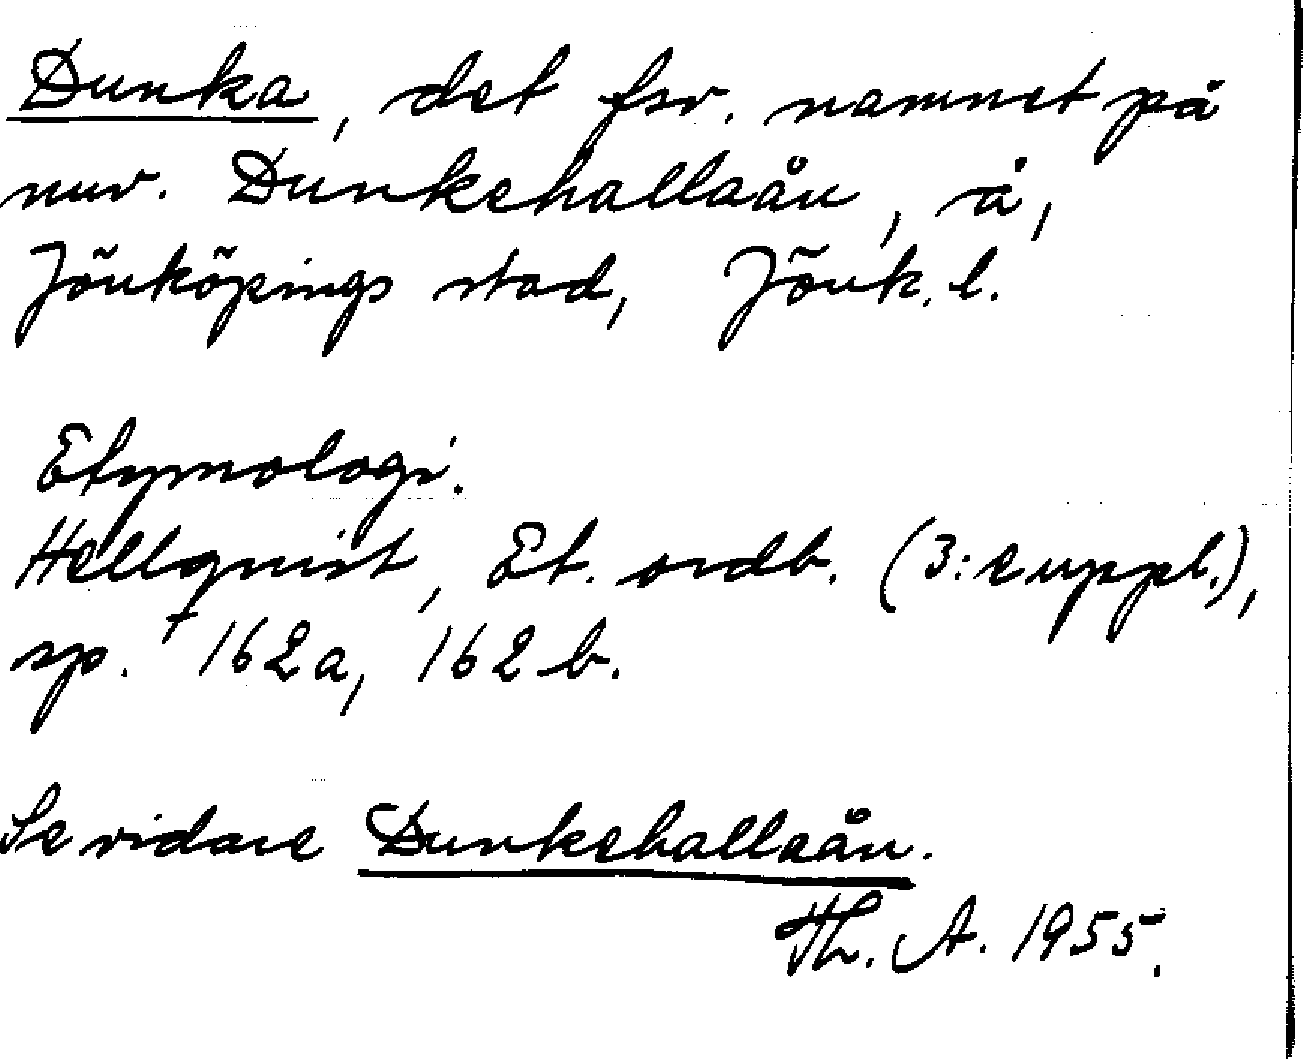 Dunka, det fsv. namnet på
nuv. Dunkehallaån, å,
Jönköpings stad, Jönk. l.
Etymologi.
Hellquist, Et. ordb. (3:e uppl.),
sp. 162a, 162b.
Se vidare Dunkehallaån.
Th. A. 1955.